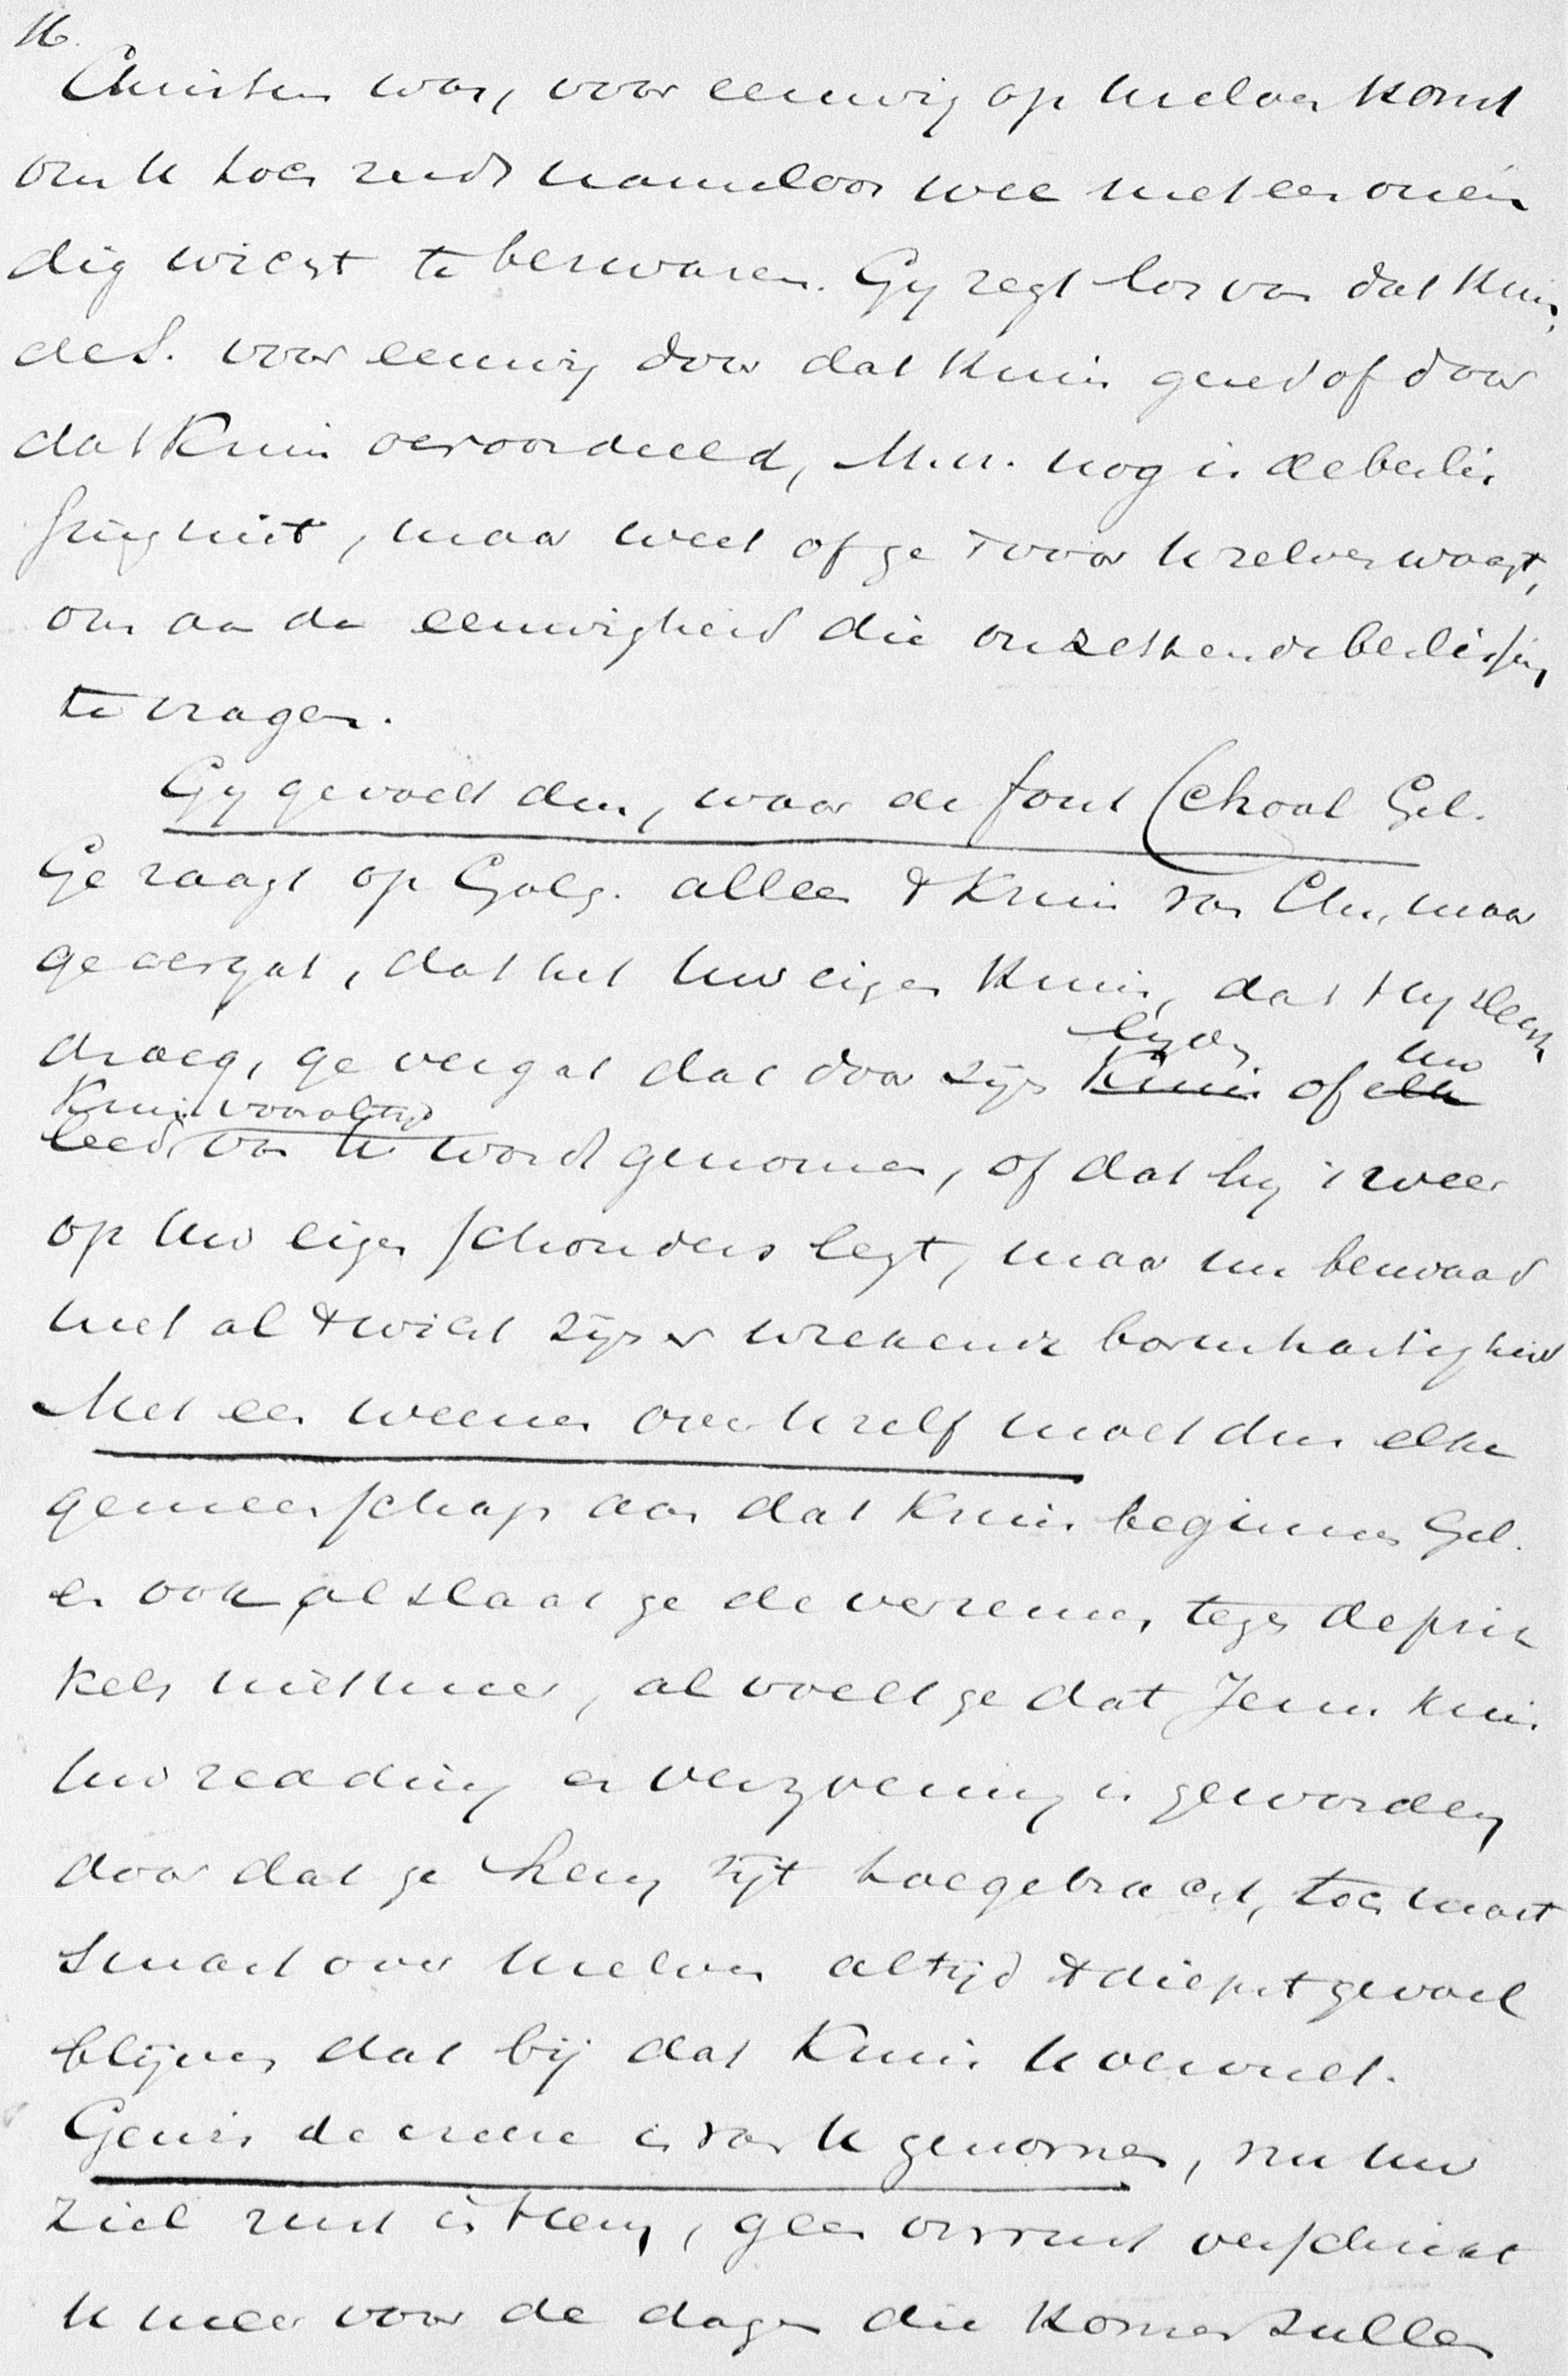 16.
Christus was, voor eeuwig op uzelven komt
om U toch reeds nameloos wee met een onein
dig wicht te bezwaren. Gy zegt los van dat kruis,
de S. voor eeuwig door dat kruis gered of door
dat Kruis veroordeeld, M.u. nog is de beslis
sing niet, maar weet of ge 't voor U zelven waagt,
om aan de eeuwigheid die ontzettende beslissing
te vragen.
Gy gevoelt dus, waar de fout school Gel.
Ge zaagt op Golg. alleen 't Kruis van Chr., maar
ge vergat, dat het Uw eigen Kruis, dat Hy slechts
droeg, ge vergat dat door zijn lijden Kruis of uw elk
Kruis voor altijd
leed van U wordt genomen, of dat hy 't weer
op Uw eigen schouders legt, maar nu bezwaard
met al 't wicht zijner wrekende barmhartigheid
Met een weenen over U zelf moet dus elke
gemeenschap aan dat Kruis beginnen Gel.
en ook al slaat ge de verzenen tegen de prik
kels niet meer, al voelt ge dat Jezus kruis
Uw redding en verzoening is geworden
door dat ge Hem zijt toegebracht, toch moet
smart over Uzelven altijd 't diepst gevoel
blijven dat bij dat Kruis U vervult.
Gewis de vreeze is van U genomen, nu uw
ziel rust in Hem, geen onrust verschrikt
U meer voor de dagen die komen zullen